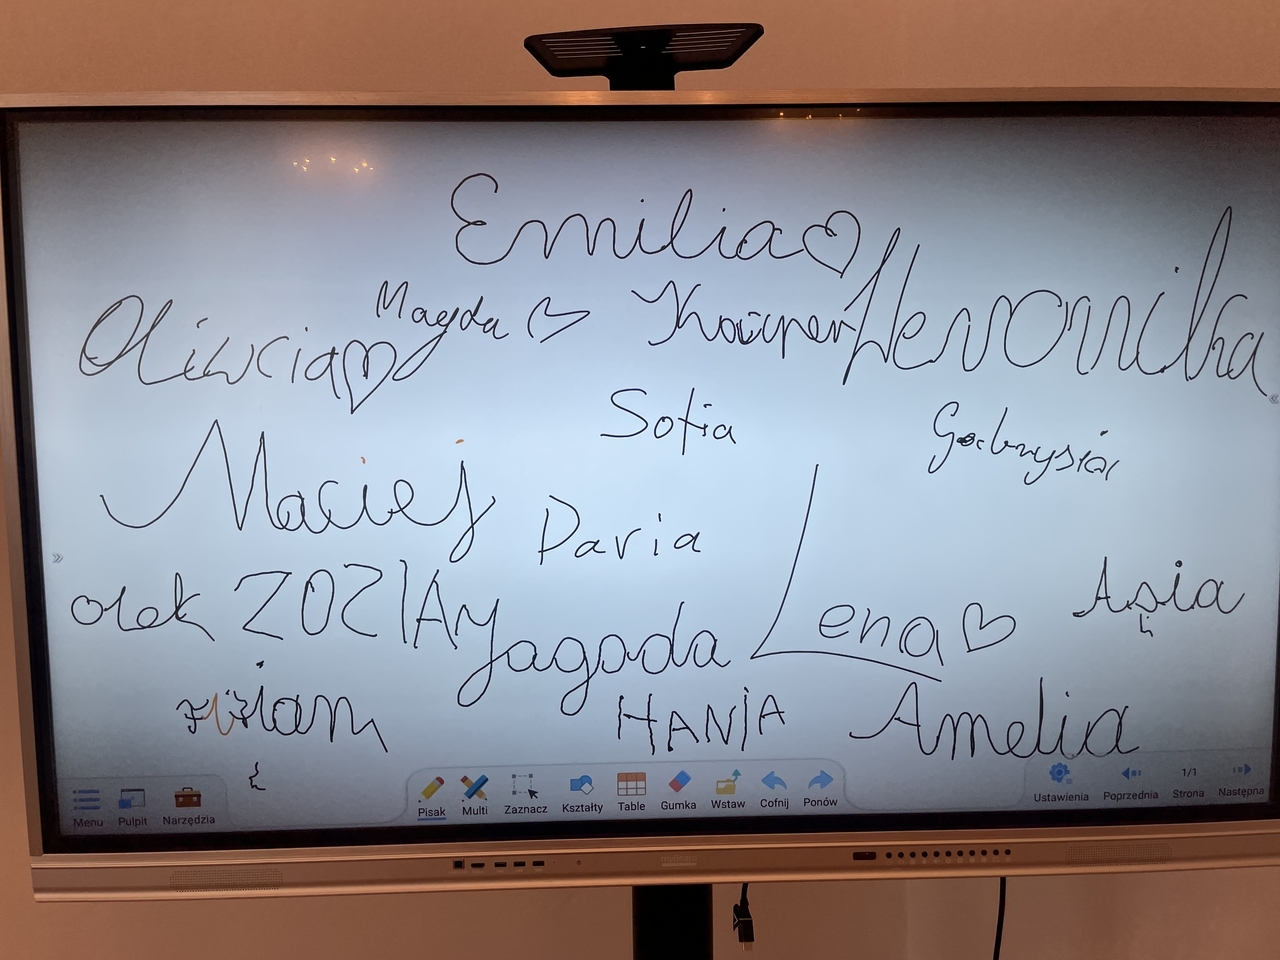 Emilia
Magda
Kacper
Weronika
Oliwcia
Sofia
Gabrysia
Maciej
Daria
Olek
ZOZIA
Jagoda
Lena
Asia
HANIA
Amelia
Menu
Pulpit
Narzędzia
Pisak
Multi
Zaznacz
Kształty
Table
Gumka
Wstaw
Cofnij
Ponów
Ustawienia
Poprzednia
1/1
Strona
Następna